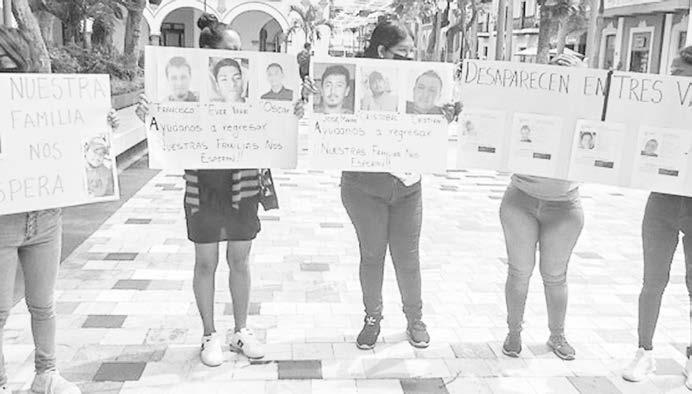 NUESTRA
FAMILIA
NOS
SPERA
"FRANCISCO" "EVER YAIR" "OSCAR
AYUDANOS A REGRESAR
NUESTRAS FAMILIAS NOS
ESPERAN!!
JOSE MANU CRISTOBAL CRISTIAN
AYUDANOS A REGRESAR
¡¡NUESTRAS FAMILIAS NOS
ESPERAN!!
DESAPARECEN EN TRES V